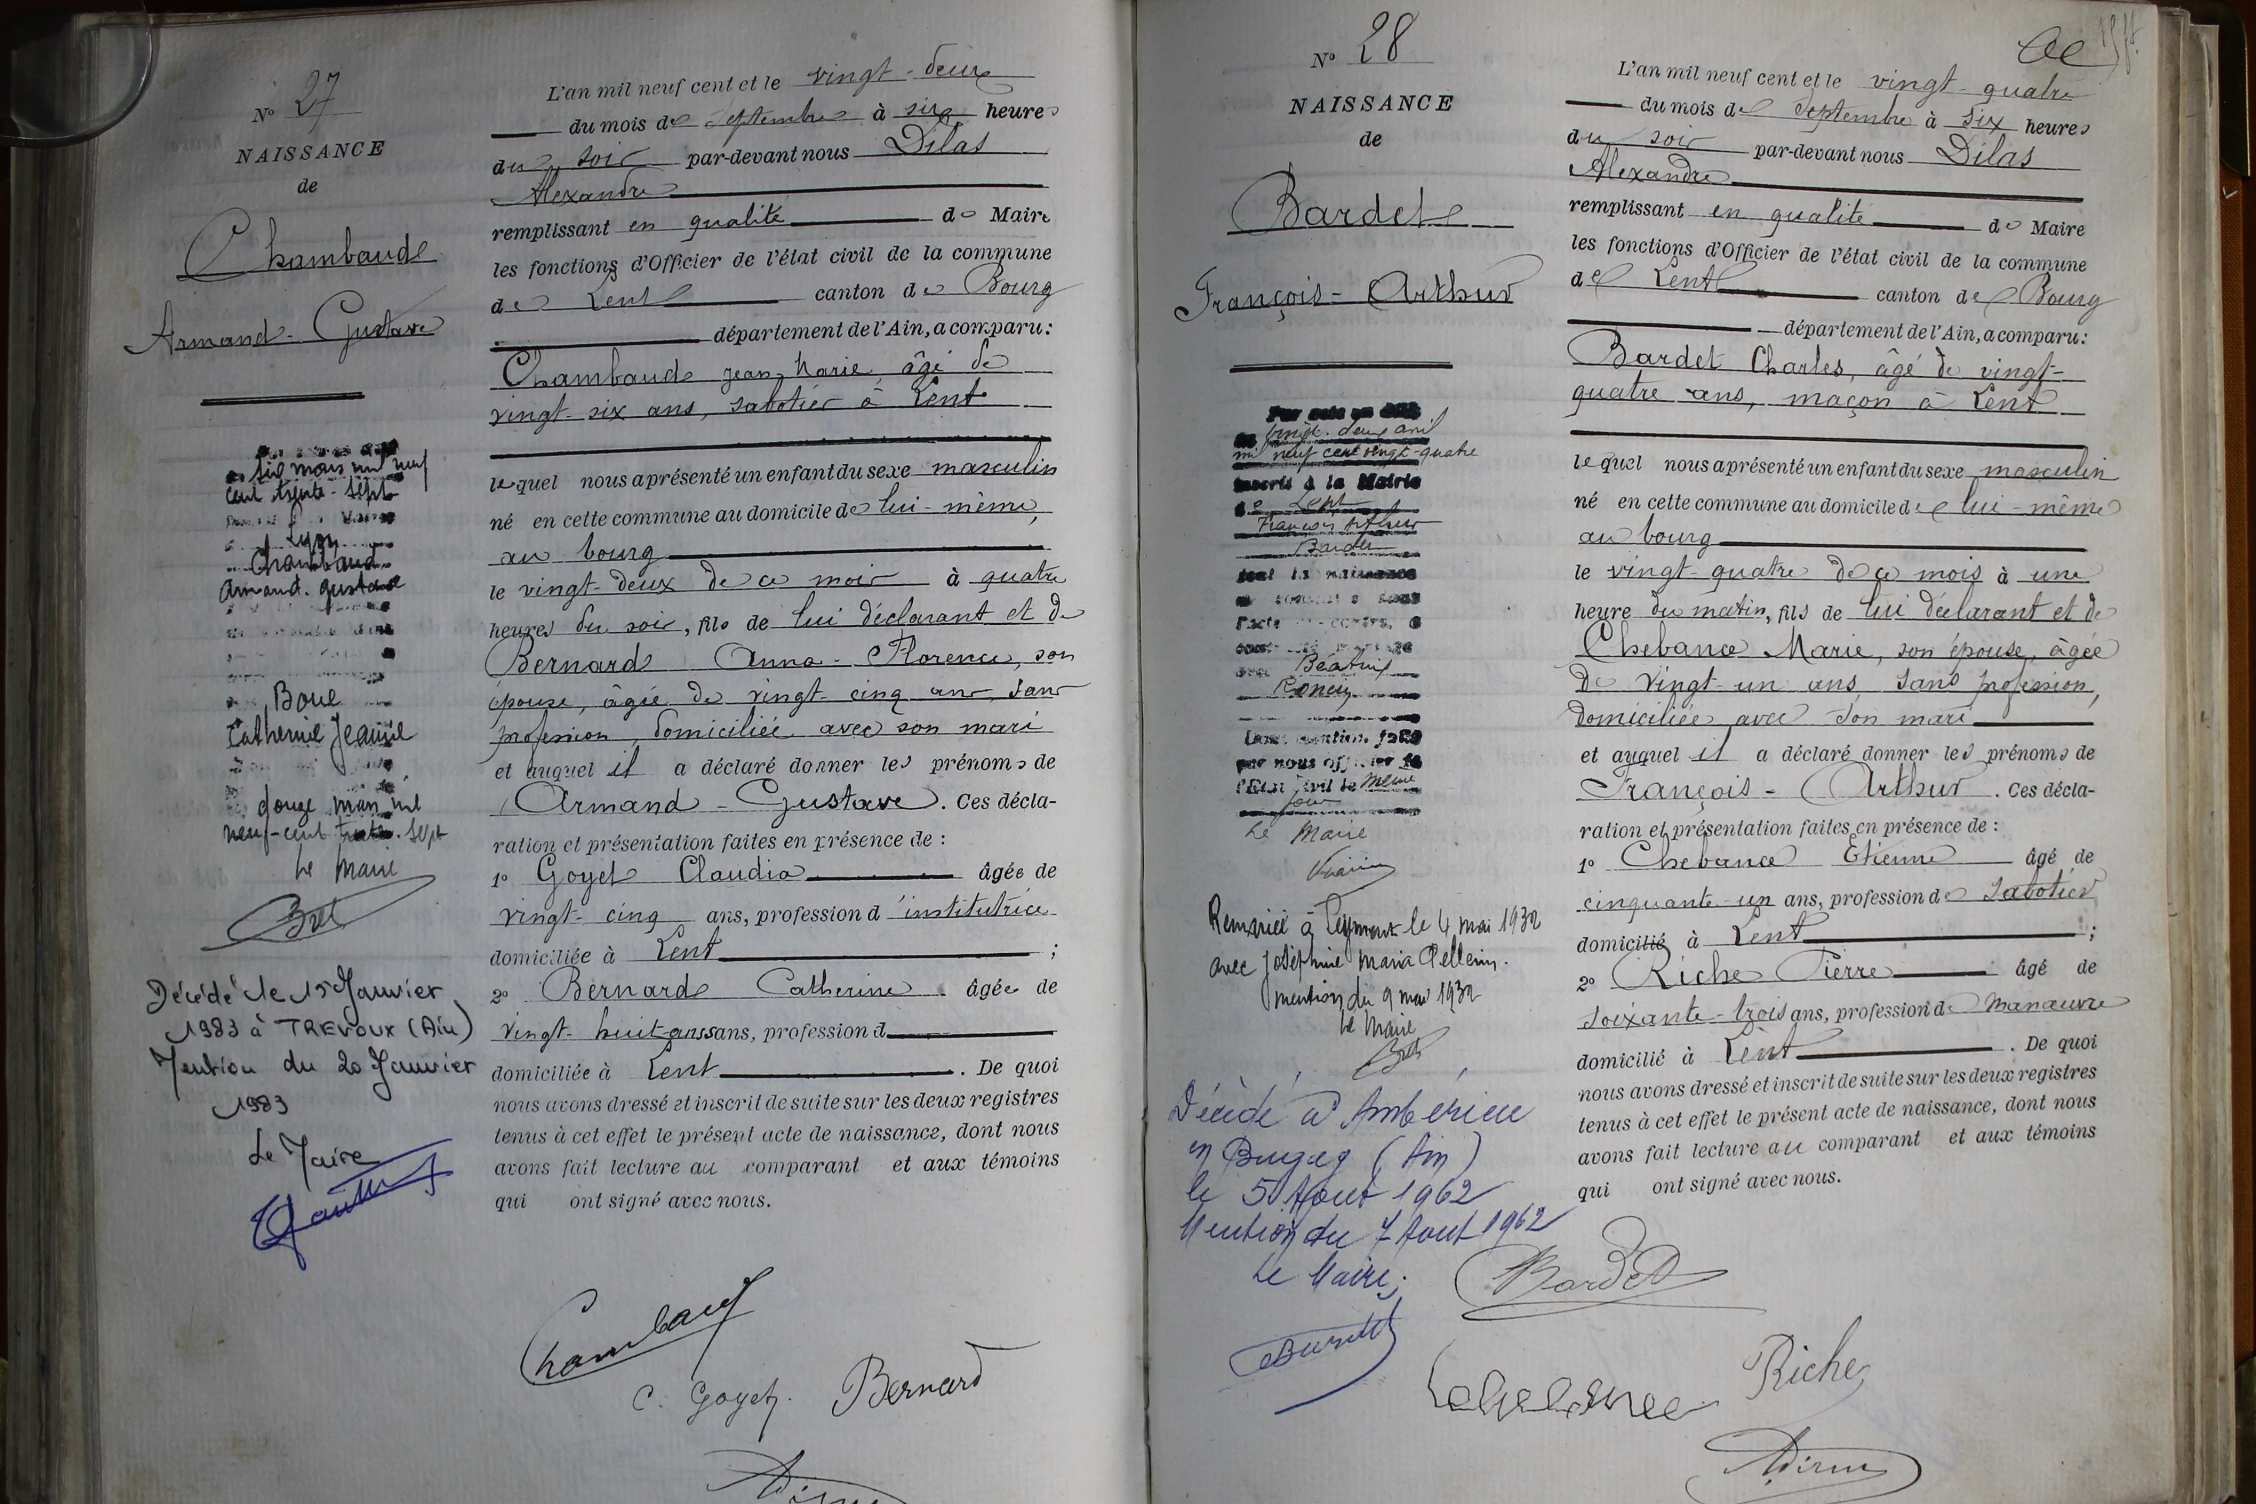 N° 27
NAISSANCE
de
Chambaud
Armand - Gustave
six mars mil neuf
cent trente-sept
Lyon
Chambaud
Armand. Gustave
Catherine Jeanne
douze mars mil
neuf-cent trente-sept
Le Maire
Bret
Décédé le 15 Janvier
1983 à TREVOUX (Ain)
Mention du 20 Janvier
1983
Le Maire
L'an mil neuf cent et le vingt-deux
du mois de Septembre à six heures
du soir par-devant nous Dilas
Alexandre
remplissant en qualité de Maire
les fonctions d'Officier de l'état civil de la commune
de Lent canton de Bourg
département de l'Ain, a comparu:
Chambaud Jean Marie, âgé de
vingt-six ans, sabotier à Lent
lequel nous a présenté un enfant du sexe masculin
né en cette commune au domicile de lui-même,
au bourg
le vingt-deux de ce mois à quatre
heures du soir, fils de lui déclarant et de
Bernard Anna-Florence, son
épouse, âgée de vingt-cinq ans, sans
profession, domiciliée avec son mari
et auquel il a déclaré donner les prénoms de
Armand-Gustave. Ces décla-
ration et présentation faites en présence de :
1° Goyet Claudia âgée de
vingt-cinq ans, profession d'institutrice
domiciliée à Lent ;
2° Bernard Catherine âgée de
vingt-huit ans ans, profession d
domiciliée à Lent . De quoi
nous avons dressé et inscrit de suite sur les deux registres
tenus à cet effet le présent acte de naissance, dont nous
avons fait lecture au comparant et aux témoins
qui ont signé avec nous.
Chambaud
C. Goyet. Bernard
N° 28
NAISSANCE
de
Bardet
François-Arthur
Par acte en date
du vingt-deux avril
mil neuf cent vingt-quatre
inscrit à la Mairie
de Lent
François Arthur
Bardet
dont la naissance
l'acte ci-contre, a
contracté mariage
avec Béatrix
par nous officier de
l'Etat civil le même
jour
Le Maire
Remarié à Leyment le 4 mai 1932
avec Joséphine Maria Pellerin.
mention du 9 mai 1932
Le Maire
Bret
Décédé à Ambérieu
en Bugey (Ain)
le 5 Août 1962
Mention du 7 Aout 1962
Le Maire;
L'an mil neuf cent et le vingt-quatre
du mois de Septembre à six heures
du soir par-devant nous Dilas
Alexandre
remplissant en qualité de Maire
les fonctions d'Officier de l'état civil de la commune
de Lent canton de Bourg
département de l'Ain, a comparu:
Bardet Charles, âgé de vingt-
quatre ans, maçon à Lent
lequel nous a présenté un enfant du sexe masculin
né en cette commune au domicile de lui-même
au bourg
le vingt-quatre de ce mois à une
heure du matin, fils de lui déclarant et de
Chebance Marie, son épouse, âgée
de vingt-un ans, sans profession,
domiciliée avec son mari
et auquel il a déclaré donner les prénoms de
François-Arthur. Ces décla-
ration et présentation faites en présence de :
1° Chebance Etienne âgé de
cinquante-un ans, profession de sabotier
domicilié à Lent ;
2° Riche Pierre âgé de
soixante-trois ans, profession de manœuvre
domicilié à Lent . De quoi
nous avons dressé et inscrit de suite sur les deux registres
tenus à cet effet le présent acte de naissance, dont nous
avons fait lecture au comparant et aux témoins
qui ont signé avec nous.
Bardet
Riche